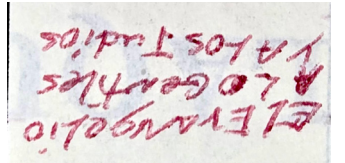 El EvANgelio
A LO GeNtiles
Y A LOS Judios